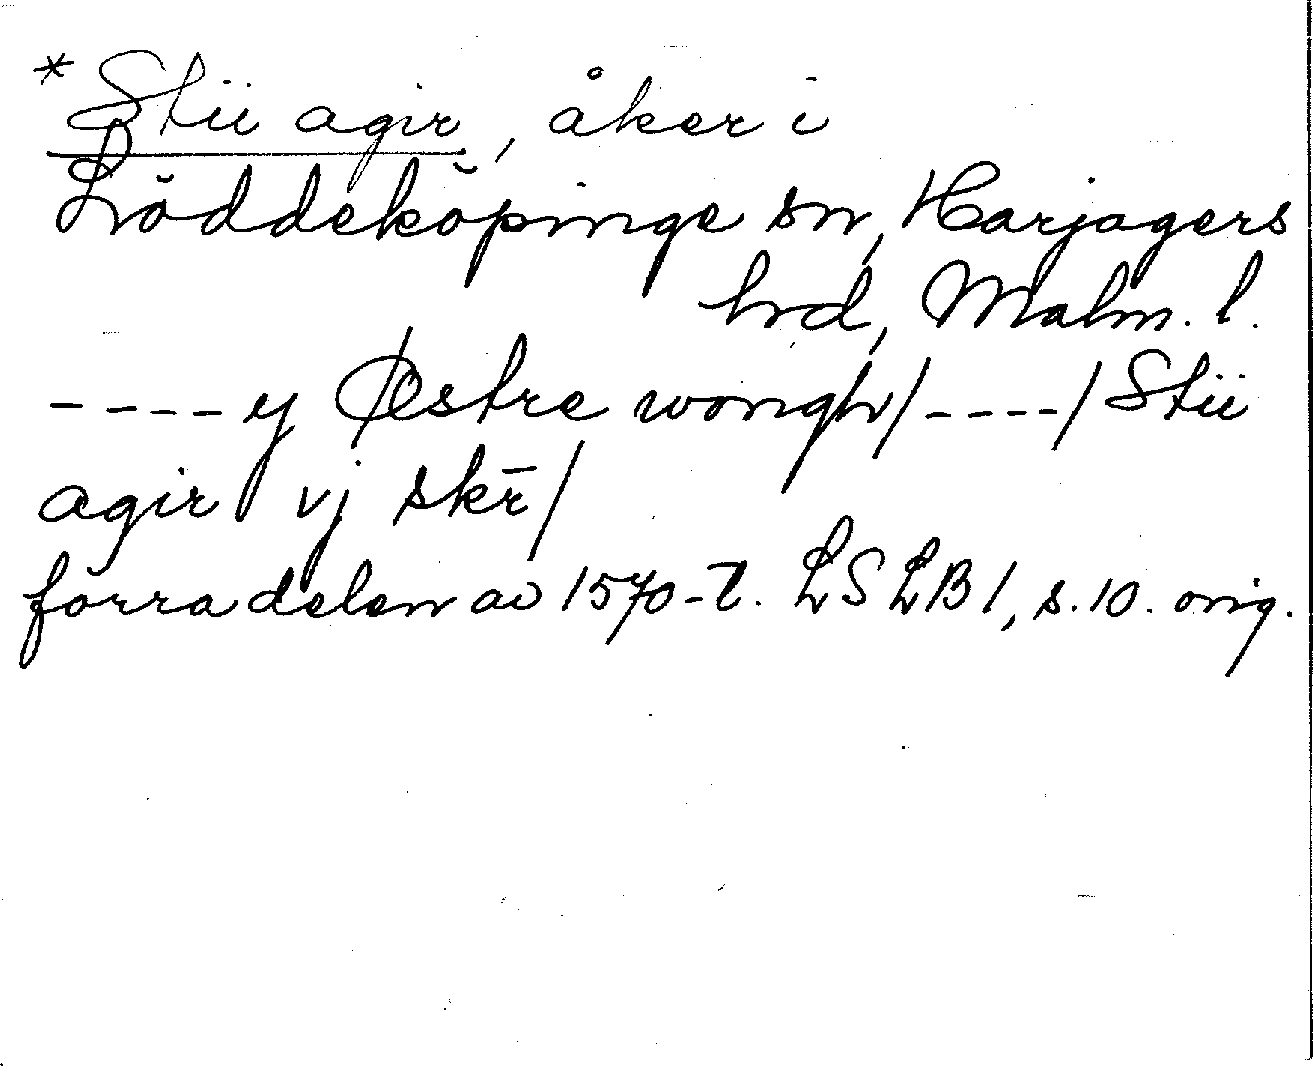 *Stii agir, åker i
Löddeköpinge sn, Harjagers
hrd, Malm. l.
----y Østre wongh/----/Stii
agir vj skr̄/
förra delen av 1570-t. LSLB1, s.10. orig.